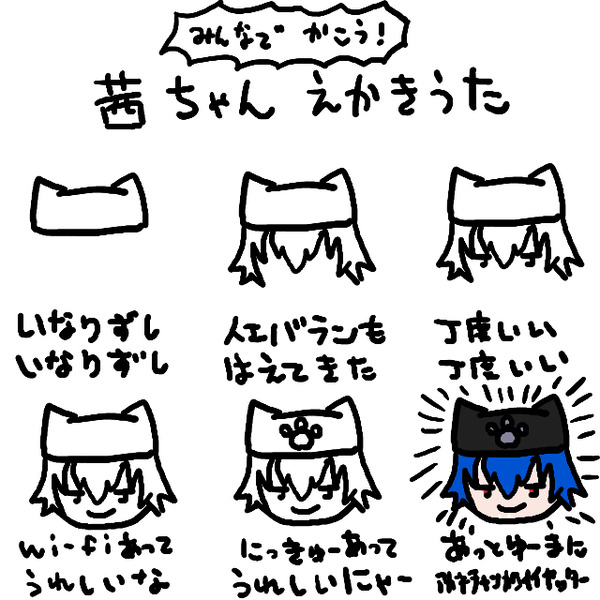 みんなで かこう!
茜ちゃん えかきうた
いなりずし
いなりずし
人工バランも
はえてきた
丁度いい
丁度いい
wi-fiあって
うれしいな
にっきゅーあって
うれしいにゃー
あっとゆーまに
アカネチャンカワイイヤッター